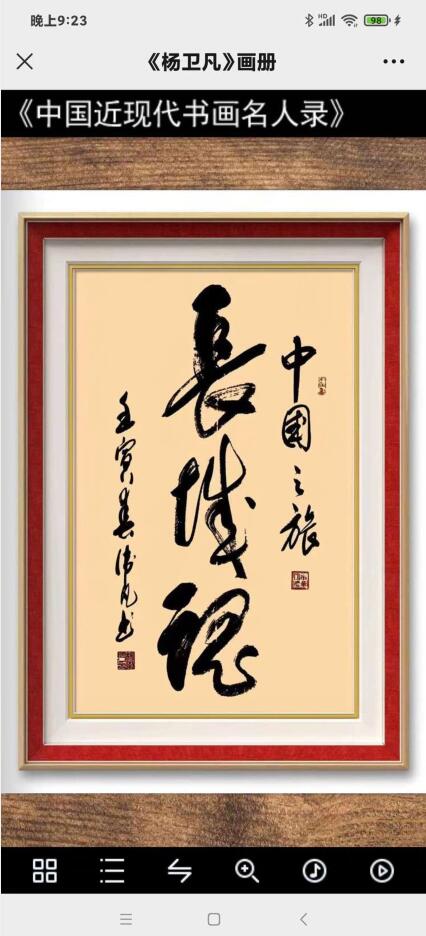 晚上9:23
HD
98
《杨卫凡》画册
《中国近现代书画名人录》
中国之旅
長城魂
壬寅春卫凡书